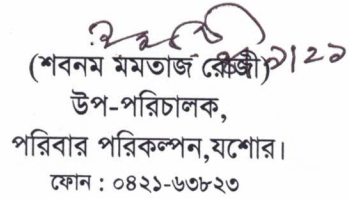 (শবনম মমতাজ রোজী)
উপ-পরিচালক,
পরিবার পরিকল্পন,যশোর।
ফোন : ০৪২১-৬৩৮২৩